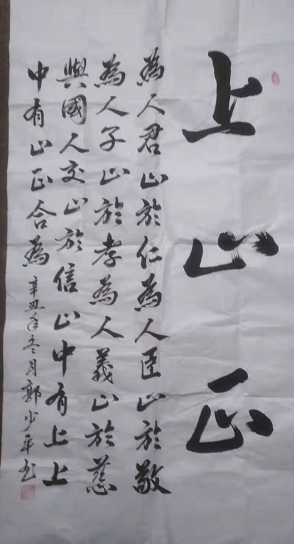 上止正
為人君止於仁為人臣止於敬
為人子止於孝為人義止於慈
與國人交止於信止中有上上
中有止正合為
辛丑年冬月郭少平书